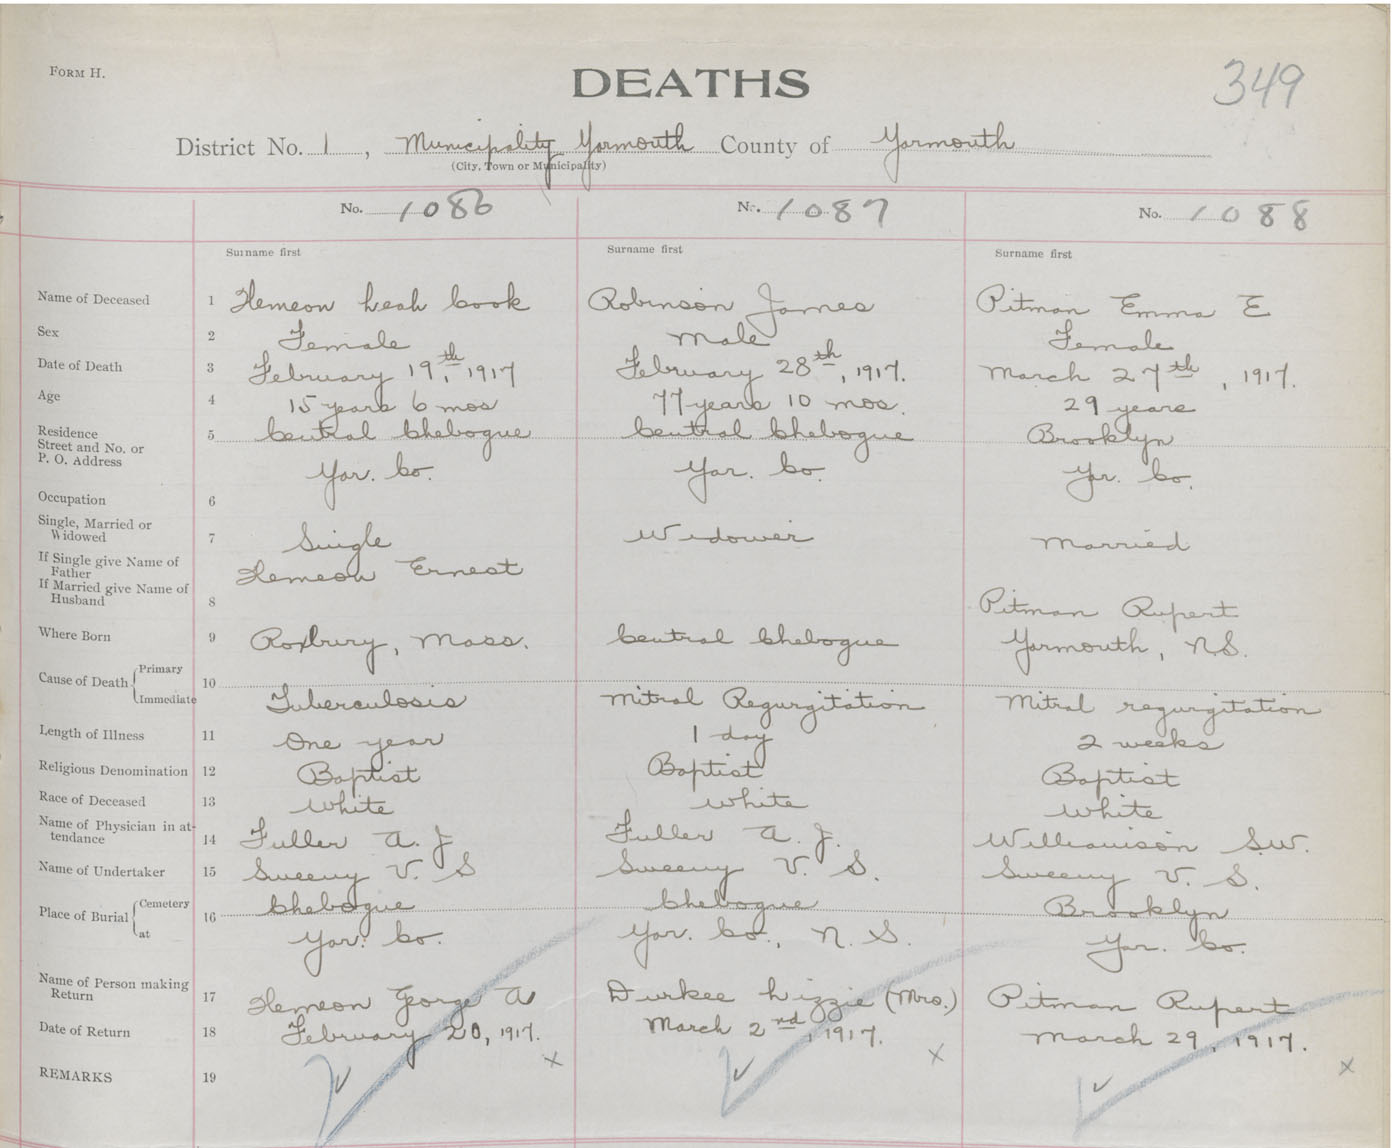 FORM H.
DEATHS
349
District No. 1, Municipality Yarmouth County of Yarmouth
(City, Town or Municipality)
No. 1086 No. 1087 No. 1088
Surname first Surname first Surname first
Name of Deceased 1 Hemeon Leah Cook Robinson James Pitman Emma E
Sex 2 Female Male Female
Date of Death 3 February 19th, 1917 February 28th, 1917. March 27th, 1917.
Age 4 15 years 6 mos 77 years 10 mos. 29 years
Residence Street and No. or P. O. Address 5 Central Chebogue Central Chebogue Brooklyn
Yar. Co. Yar. Co. Yar. Co.
Occupation 6
Single, Married or Widowed 7 Single Widower Married
If Single give Name of Father Hemeon Ernest
If Married give Name of Husband 8 Pitman Rupert
Where Born 9 Roxbury, Mass. Central Chebogue Yarmouth, N.S.
Cause of Death Primary 10
Immediate Tuberculosis Mitral Regurgitation Mitral regurgitation
Length of Illness 11 One year 1 day 2 weeks
Religious Denomination 12 Baptist Baptist Baptist
Race of Deceased 13 White White White
Name of Physician in attendance 14 Fuller A. J Fuller A. J. Williamson S.W.
Name of Undertaker 15 Sweeny V. S Sweeny V. S. Sweeny V. S.
Place of Burial Cemetery 16 Chebogue Chebogue Brooklyn
at Yar. Co. Yar. Co., N. S. Yar. Co.
Name of Person making Return 17 Hemeon George A Durkee Lizzie (Mrs.) Pitman Rupert
Date of Return 18 February 20, 1917. March 2nd, 1917. March 29, 1917.
REMARKS 19